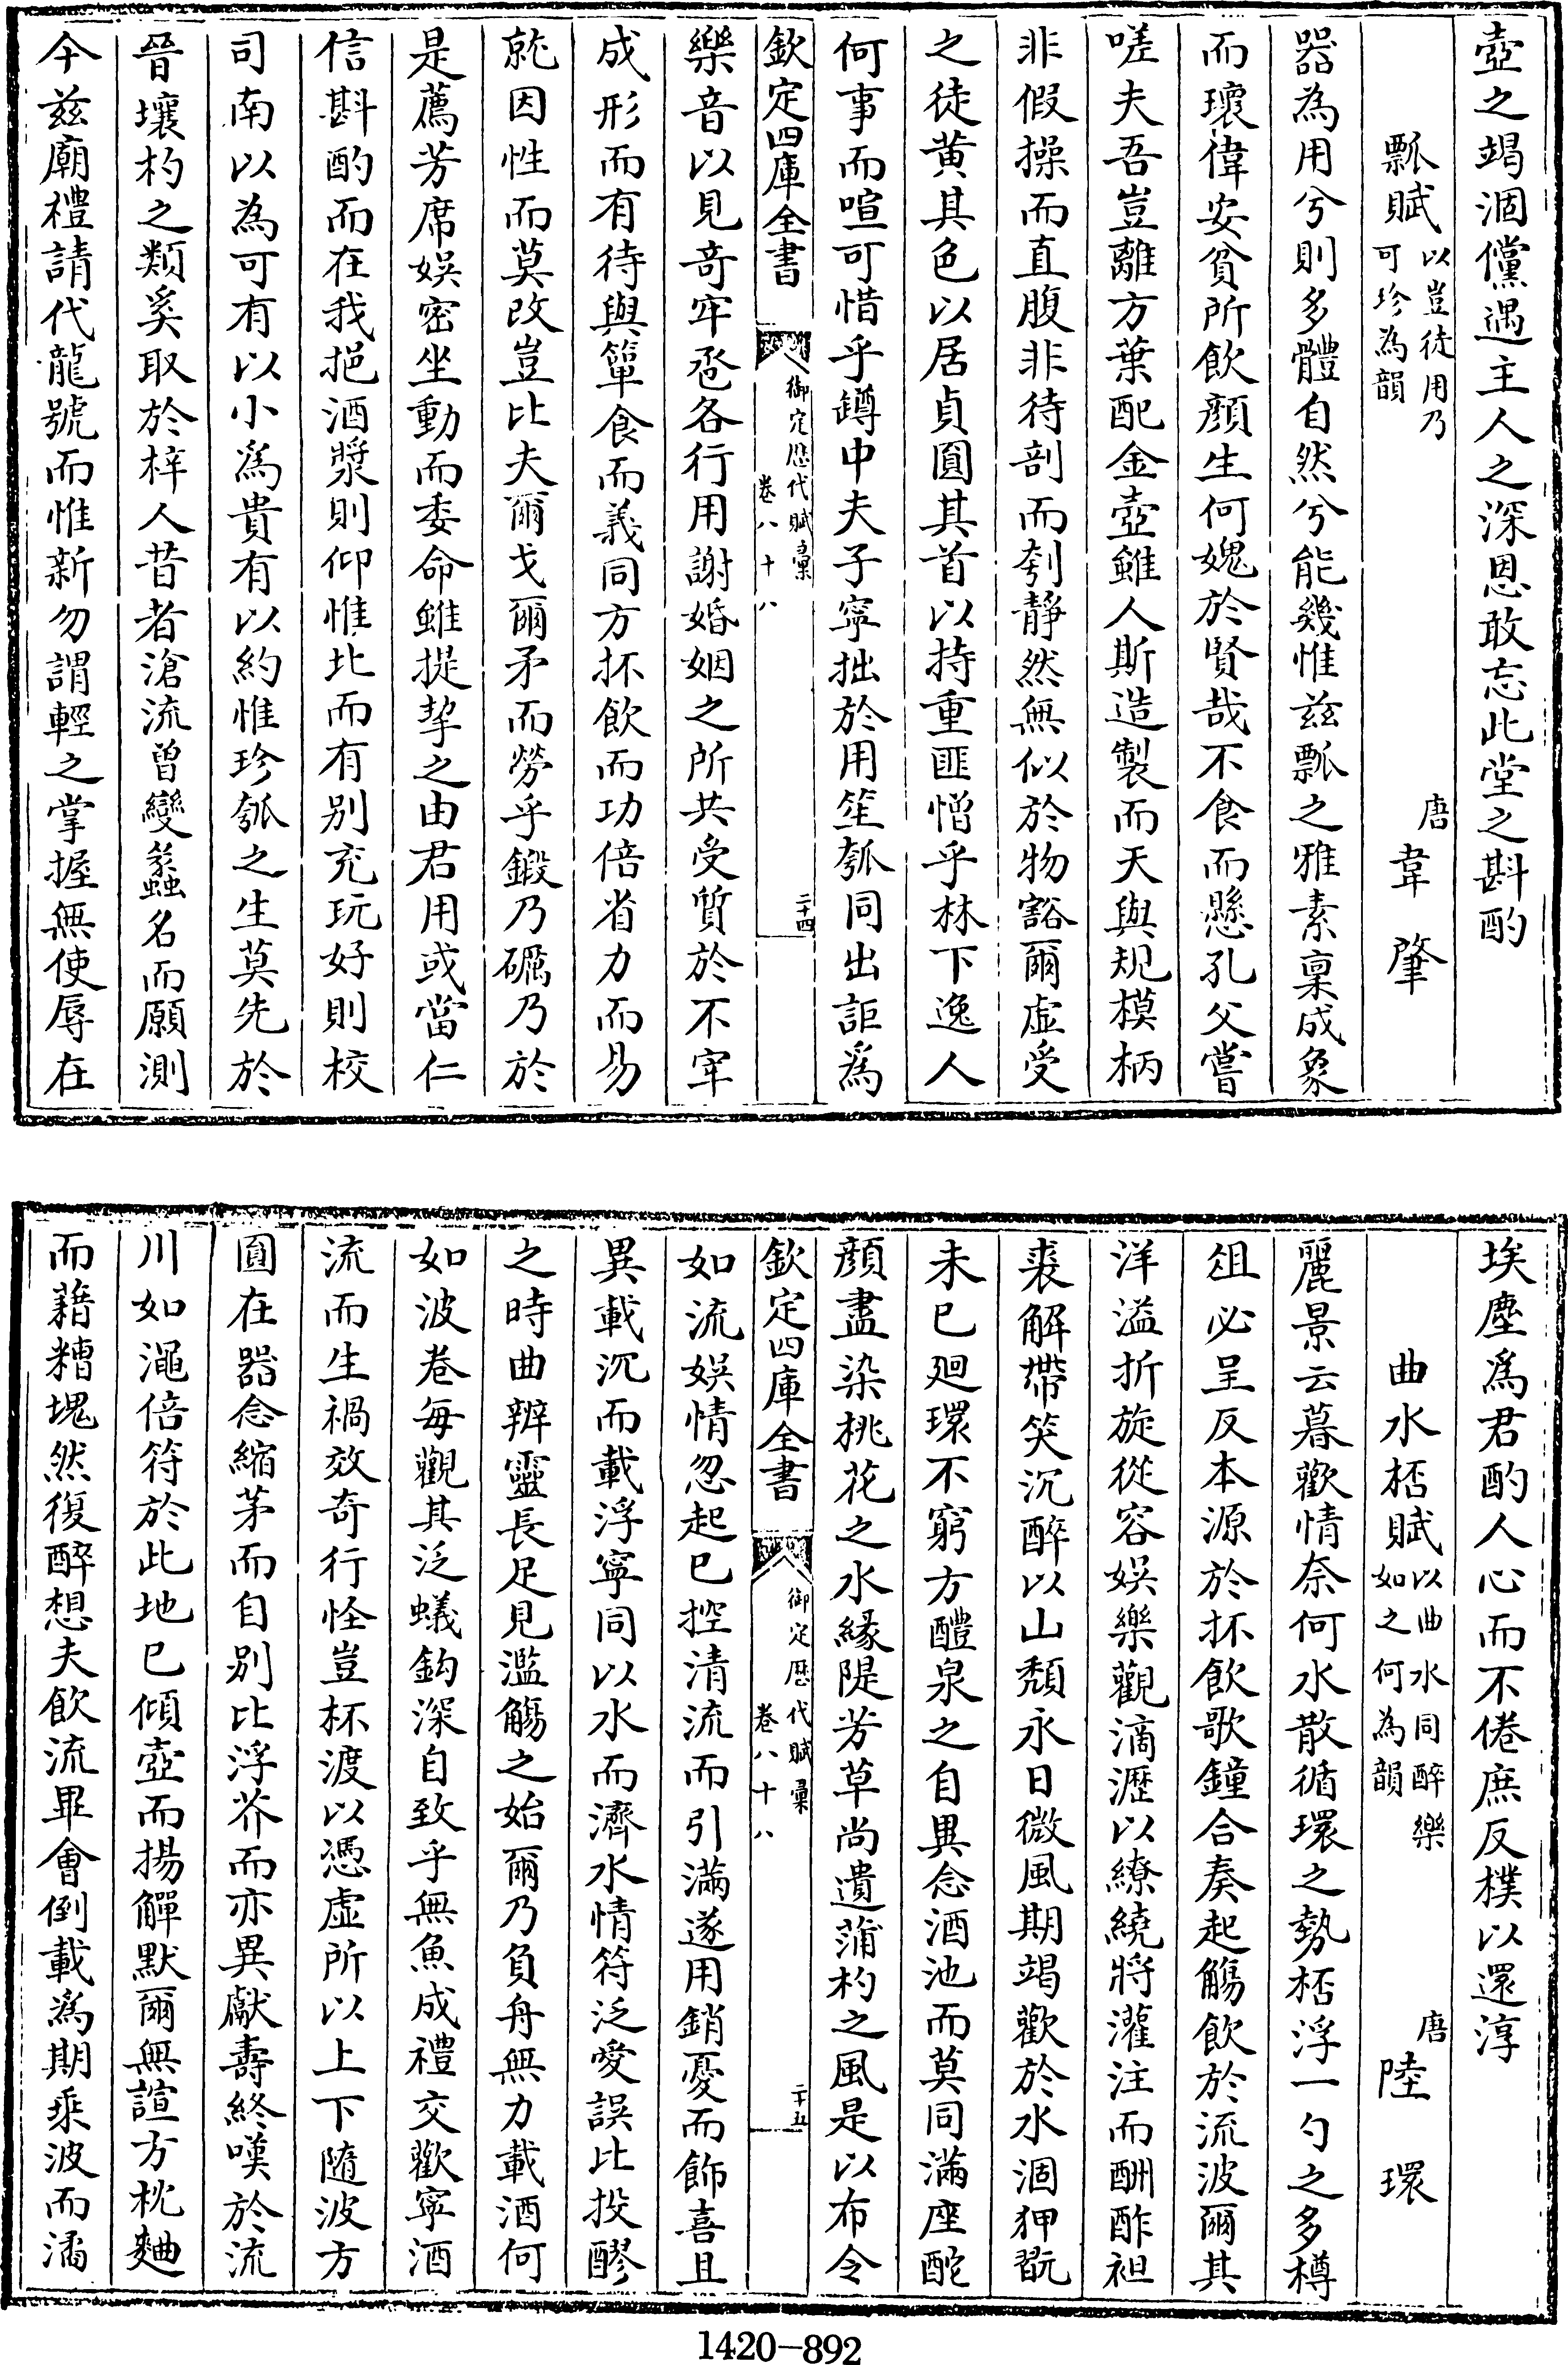 壺之竭涸儻遇主人之深恩敢忘此堂之斟酌
瓢賦以豈徒用乃可珍為韻
唐韋肇
器為用兮則多體自然兮能幾惟茲瓢之雅素稟成象
而瓌偉安貧所飲顏生何媿於賢哉不食而懸孔父嘗
嗟夫吾豈離方葉配金壺雖人斯造製而天與規模柄
非假操而直腹非待剖而刳靜然無似於物豁爾虛受
之徒黃其色以居貞圓其首以持重匪憎乎林下逸人
何事而喧可惜乎罇中夫子寧拙於用笙瓠同出詎為
欽定四庫全書
御定歷代賦彙
卷八十八
二十四
樂音以見奇牢卺各行用謝婚姻之所共受質於不宰
成形而有待與簞食而義同方抔飲而功倍省力而易
就因性而莫改豈比夫爾戈爾矛而勞乎鍛乃礪乃於
是薦芳席娛密坐動而委命雖提挈之由君用或當仁
信斟酌而在我挹酒漿則仰惟北而有別充玩好則校
司南以為可有以小為貴有以約惟珍瓠之生莫先於
晉壤杓之類奚取於梓人昔者滄流曾變蠡名而願測
今茲廟禮請代龍號而惟新勿謂輕之掌握無使辱在
埃塵為君酌人心而不倦庶反樸以還淳
曲水桮賦以曲水同醉樂如之何為韻
唐陸環
麗景云暮歡情奈何水散循環之勢桮浮一勺之多樽
俎必呈反本源於抔飲歌鐘合奏起觴飲於流波爾其
洋溢折旋從容娛樂觀滴瀝以繚繞將灌注而酬酢袒
裘解帶笑沉醉以山頹永日微風期竭歡於水涸狎翫
未已廻環不窮方醴泉之自異念酒池而莫同滿座酡
顏盡染桃花之水緣隄芳草尚遺蒲杓之風是以布令
欽定四庫全書
御定歷代賦彙
卷八十八
二十五
如流娛情忽起已控清流而引滿遂用銷憂而飾喜且
異載沉而載浮寧同以水而濟水情符泛愛誤比投醪
之時曲辨靈長足見濫觴之始爾乃負舟無力載酒何
如波卷每觀其泛蟻鈎深自致乎無魚成禮交歡寧酒
流而生禍效奇行怪豈杯渡以憑虛所以上下隨波方
圓在器念縮茅而自別比浮芥而亦異獻壽終嘆於流
川如澠倍符於此地已傾壺而揚觶默爾無諠方枕麯
而藉糟塊然復醉想夫飲流畢會倒載為期乘波而潏
1420-892